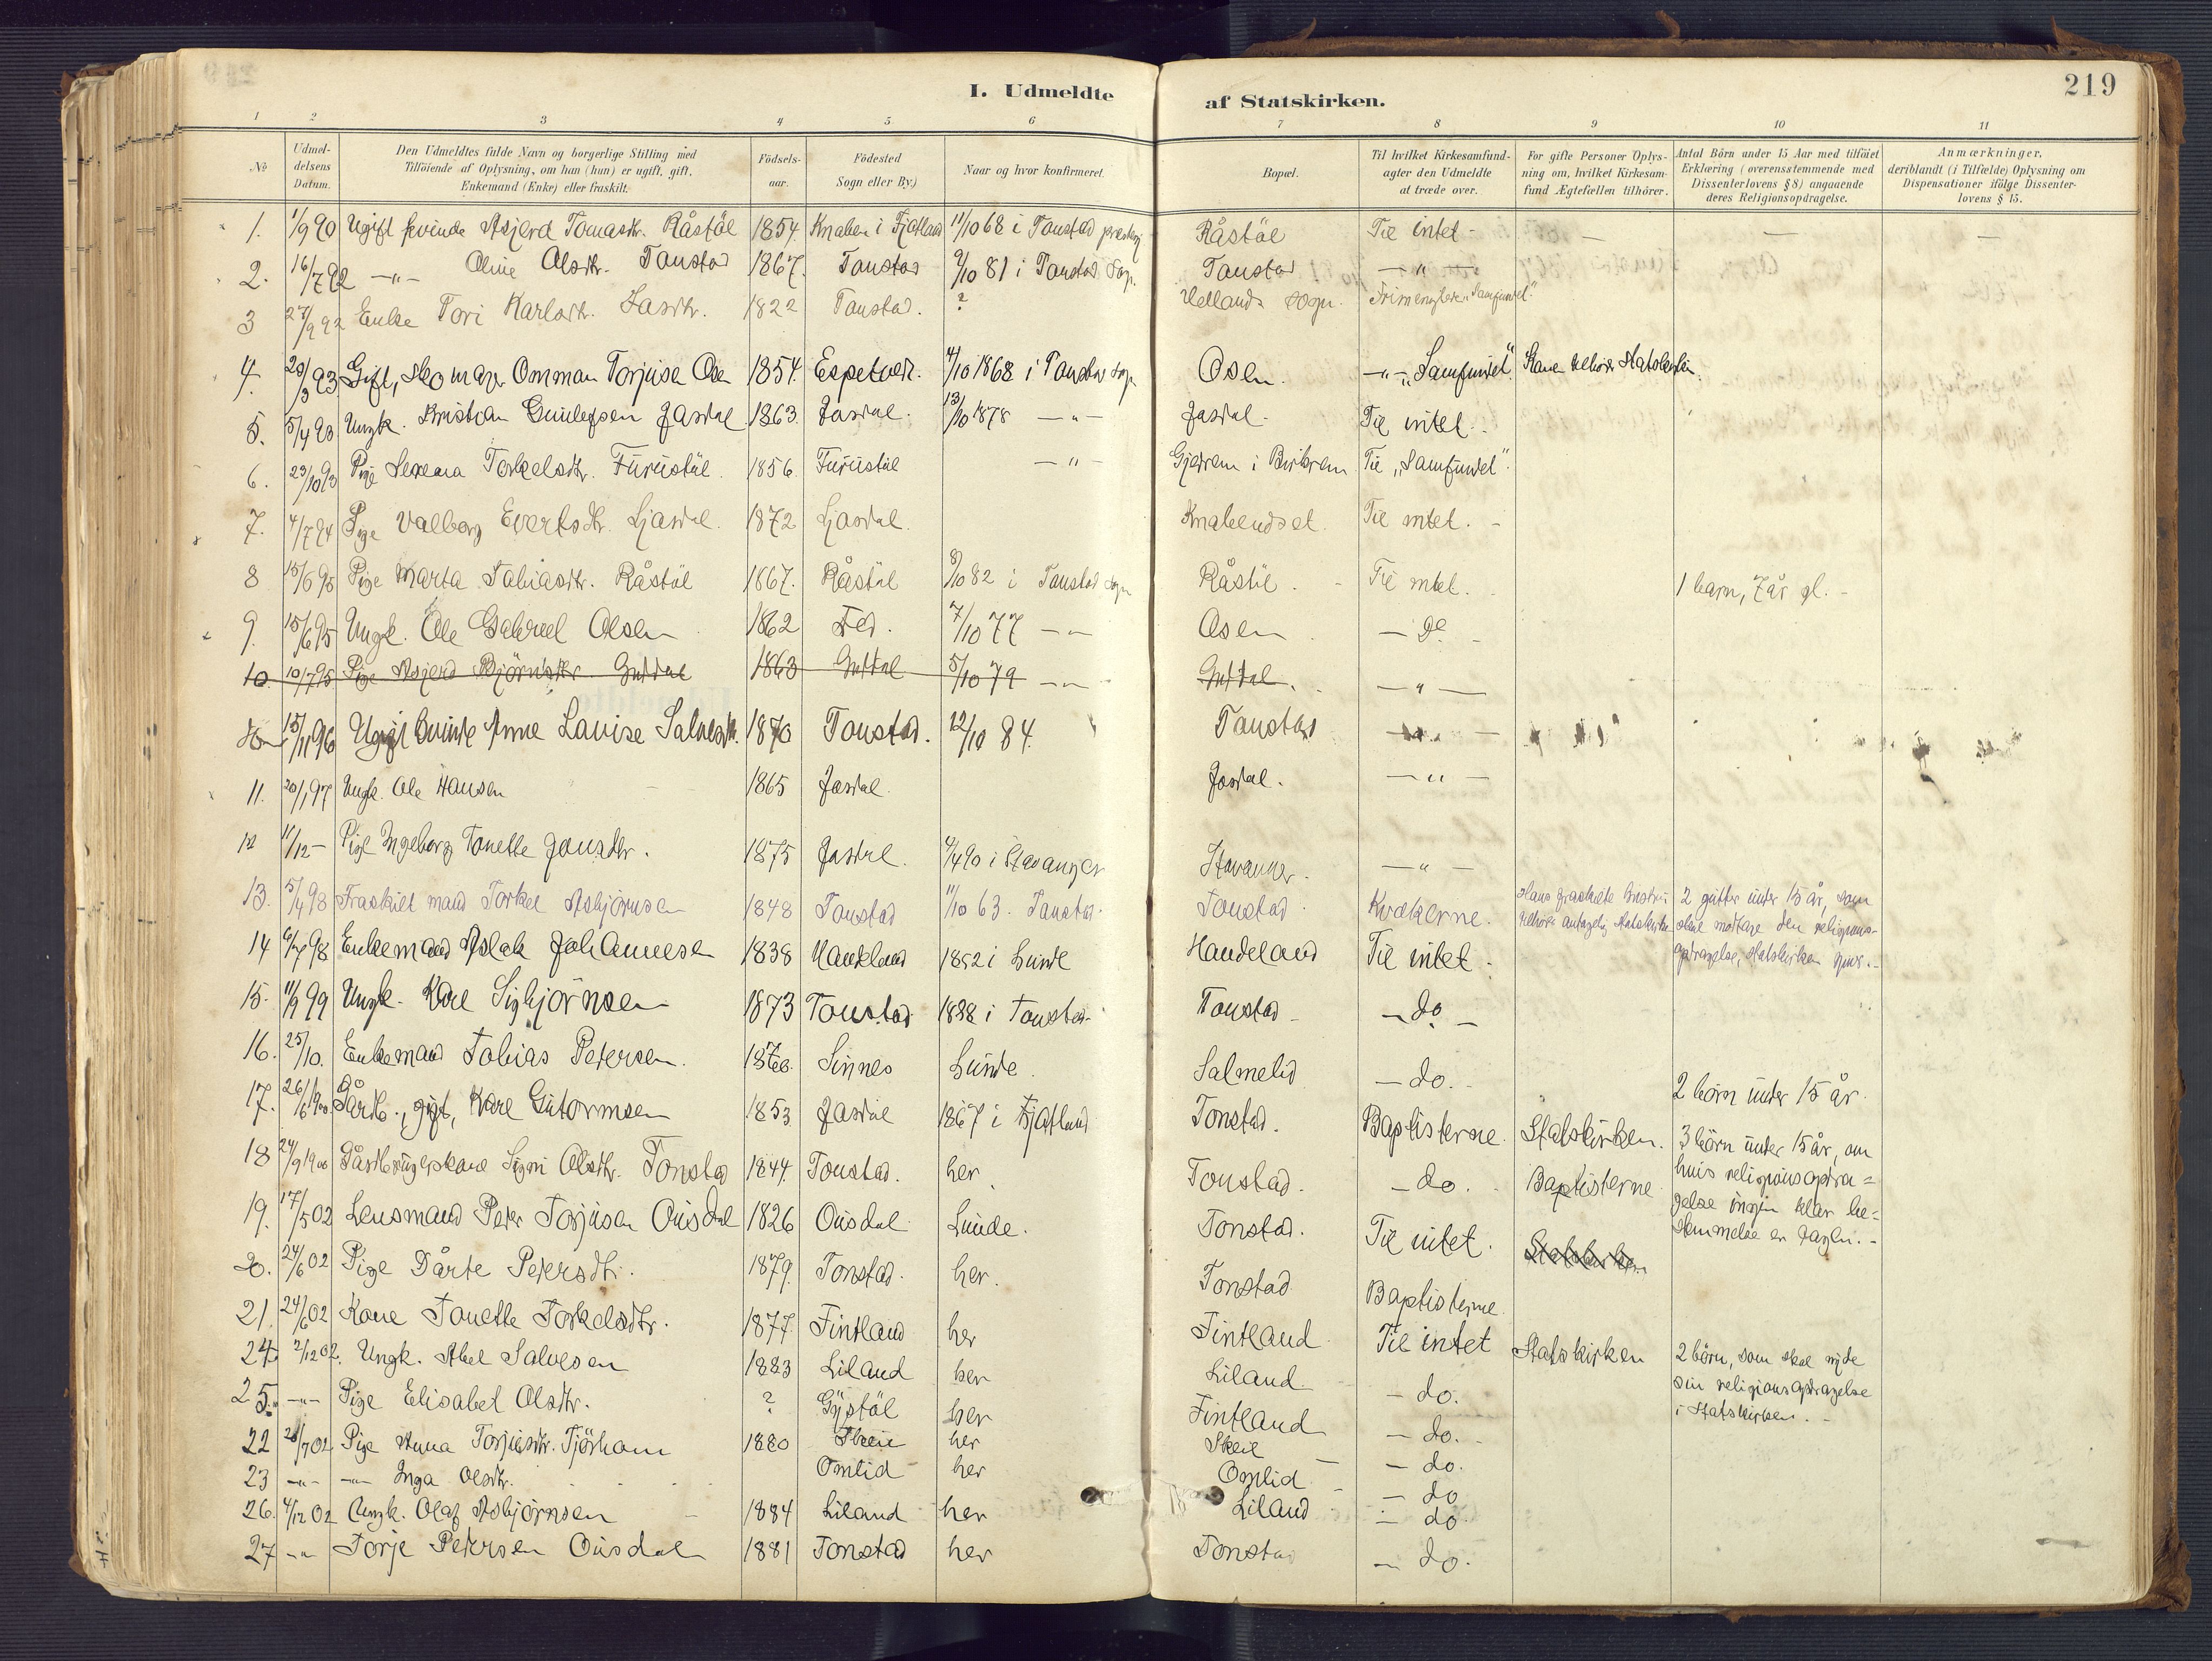 I. Udmeldte af Statskirken. 219
1 2 3 4 5 6 7 8 9 10 11
№ Udmeldelsens Datum. Den Udmeldtes fulde Navn og borgerlige Stilling med Tilföiende af Oplysning, om han (hun) er ugift, gift, Enkemand (Enke) eller fraskilt. Födsels-aar. Födested Sogn eller By.) Naar og hvor konfirmeret. Bopæl. Til hvilket Kirkesamfund agter den Udmeldte at træde over. For gifte Personer Oplysning om, hvilket Kirkesamfund Ægtefællen tilhörer. Antal Börn under 15 Aar med tilföiet Erklæring (overensstemmende med Dissenterlovens § 8) angaaende deres Religionsopdragelse. Anmærkninger, deriblandt (i Tilfælde) Oplysning om Dispensationer ifölge Dissenterlovens § 15.
1. 1/9 90 Ugift kvinde Asjerd Tomasdtr. Råstöl 1854. Knaben i Fjotland 11/10 68 i Tonstad Råstöl Til intet - — — —
2. 16/7 92 —"— Oline Olsdtr. Tonstad 1867. Tonstad 9/10 81 i Tonstad Sogn. Tonstad — " —
3 27/9 92 Enke Tori Karlsdtr. 1822 Tonstad. ? Hellands sogn. "Samfundet".
4. 20/3 93 Gift, Skomager Omman Torjusen Osen 1854. Espetvedt. 4/10 1868 i Tonstad Sogn Osen. —"— „Samfundet". Kone tilhører Statskirken.
5. 5/4 93 Ungk. Kristian Gunlefsen Josdal 1863. Josdal. 13/10 1878 — " — Josdal. Til intet.
6. 23/10 93 Pige Serena Torkelsdtr. Furustöl. 1856. Furustöl — " — Gjedrem i Birkrem Til „Samfundet".
7. 4/7 94 Pige Valborg Evertsdtr. Ljosdal. 1872 Ljosdal. Knabeudset. Til intet. -
8 15/6 95 Pige Marta Tobiasdtr. Råstöl 1867. Råstöl 8/10 82 i Tonstad Sogn Råstöl. - Til intet. 1 barn, 7 år gl. -
9. 15/6 95 Ungk. Ole Gabriel Olsen 1862 Fed. 7/10 77 — " — Osen — do -
10. 10/7 95 Pige Asjerd Björnsdtr. 1863 5/10 79 — " — — " —
15/11 96 Ugift kvinde Anne Lovise Salvesdtr. 1870 Tonstad. 12/10 84. Tonstad — " —
11. 20/1 97 Ungk. Ole Hansen 1865 Josdal. Josdal. — " —
12 11/12 — Pige Ingeborg Tonette Jonsdtr. 1875 Josdal. 4/4 90 i Stavanger Stavanger. — " —
13. 5/4 98 Fraskilt mand Torkel Asbjörnsen 1848 Tonstad 11/10 63. Tonstad. Tonstad. Kvækerne. Hans fraskilte hustru tilhører antagelig Statskirken 2 gutter under 15 år, som skal modtage den religionsopdragelse, Statskirken giver. -
14 98 Enkemand Aslak Johannesen 1838 Handeland 1852 i Lunde Handeland Til intet.
15. 11/9 99 Ungk. Kare Sigbjörnsen 1873 Tonstad 1888 i Tonstad. Tonstad - — do —
16. 25/10. Enkemand Tobias Petersen. Sinnes Lunde. Salmelid — do. - 2 börn under 15 år.
17. 26/6 1900 Gårdb., gift, Kare Gutormsen 1853 Josdal 1867 i Fjotland Tonstad. Baptisterne. Statskirken. 3 börn under 15 år, om hvis religionsopdragelse ingen klar bestemmelse er tagen. -
18 24/9 1900 Gårdbrugerskone Signi Olsdtr. Tonstad 1844. Tonstad. her. Tonstad. — do. Baptisterne
19. 17/5 02 Lensmand Peter Torjusen Ousdal 1826 Ousdal Lunde. Tonstad. Til intet. Statskirken
20. 24/6 02 Pige Dårte Petersdtr. 1879. Tonstad. her. Tonstad Baptisterne.
21. 24/6 02 Kone Tonette Torkelsdtr. 1877. Fintland her Fintland Til intet Statskirken 2 börn, som skal nyde sin religionsopdragelse i Statskirken. -
24. 2/12 02. Ungk. Abel Salvesen 1883 Liland her Liland — do.
25. —"— Pige Elisabet Olsdtr. ? Gýstöl her Fintland — do. -
22 28/7 02 Pige Anna Torjusdtr. Tjörhom 1880 Skeie her Skeie — do.
23 —"— —"— Inga Olsdtr. Omlid her Omlid - — do
26. 4/12 02 Ungk. Olaf Asbjörnsen 1884 Liland her Liland — do
27 —"— Torje Petersen Ousdal 1881 Tonstad her Tonstad — do.